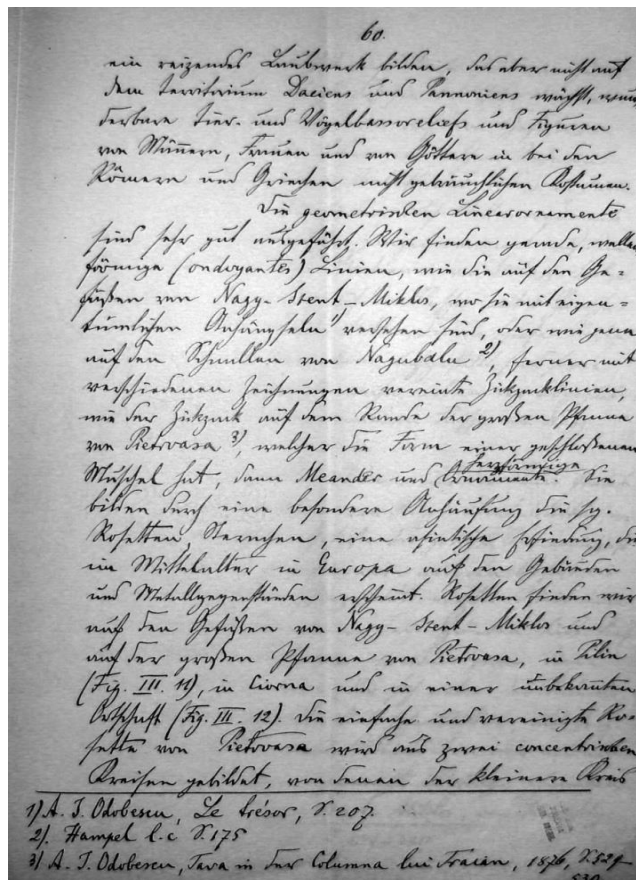 60.
ein reizendes Laubwerk bilden, das aber nicht auf
dem Territorium Daciens und Pannoniens wächst, wun-
derbare Tier- und Vögelbassoreliefs und Figuren
von Männern, Frauen und von Göttern in bei den
Römern und Griechen nicht gebräuchlichen Kostumen.
Die geometrischen Linearornamente
sind sehr gut ausgeführt. Wir finden gerade, wellen
förmige (ondoyantes) Linien, wie die auf den Ge=
fäßen von Nagy-Szent-Miklos, wo sie mit eigen=
tümlichen Anhängseln 1) versehen sind, oder wie jene
auf den Schnallen von 2), ferner mit
verschiedenen Zeichnungen vereinte Zikzacklinien,
wie der Zikzack auf dem Rande der großen Pfanne
von Pietroasa 3), welcher die Form einer geschlossenen
Muschel hat, dann Meander und herzförmige
Ornamente. Sie
bilden durch eine besondere Anhäufung die sg.
Rosetten, Sternchen, eine asiatische Erfindung, die
im Mittelalter in Europa auf den Gebäuden
und Metallgegenständen erscheint. Rosetten finden wir
auf den Gefäßen von Nagy-Szent-Miklos und
auf der großen Pfanne von Pietroasa, in Pilin
(Fig. III. 11), in Ciorna und in einer unbekannten
Ortschaft (Fig. III. 12). Die einfache und vereinigte Ro-
sette von Pietroasa wird aus zwei concentrischen
Kreisen gebildet, von denen der kleinere Kreis
1) A. I. Odobescu, Le trésor, S. 207.
2). Hampel l. c S. 175
3) A. I. Odobescu, in der Columna lui Traian, 1876, S. 529-
530